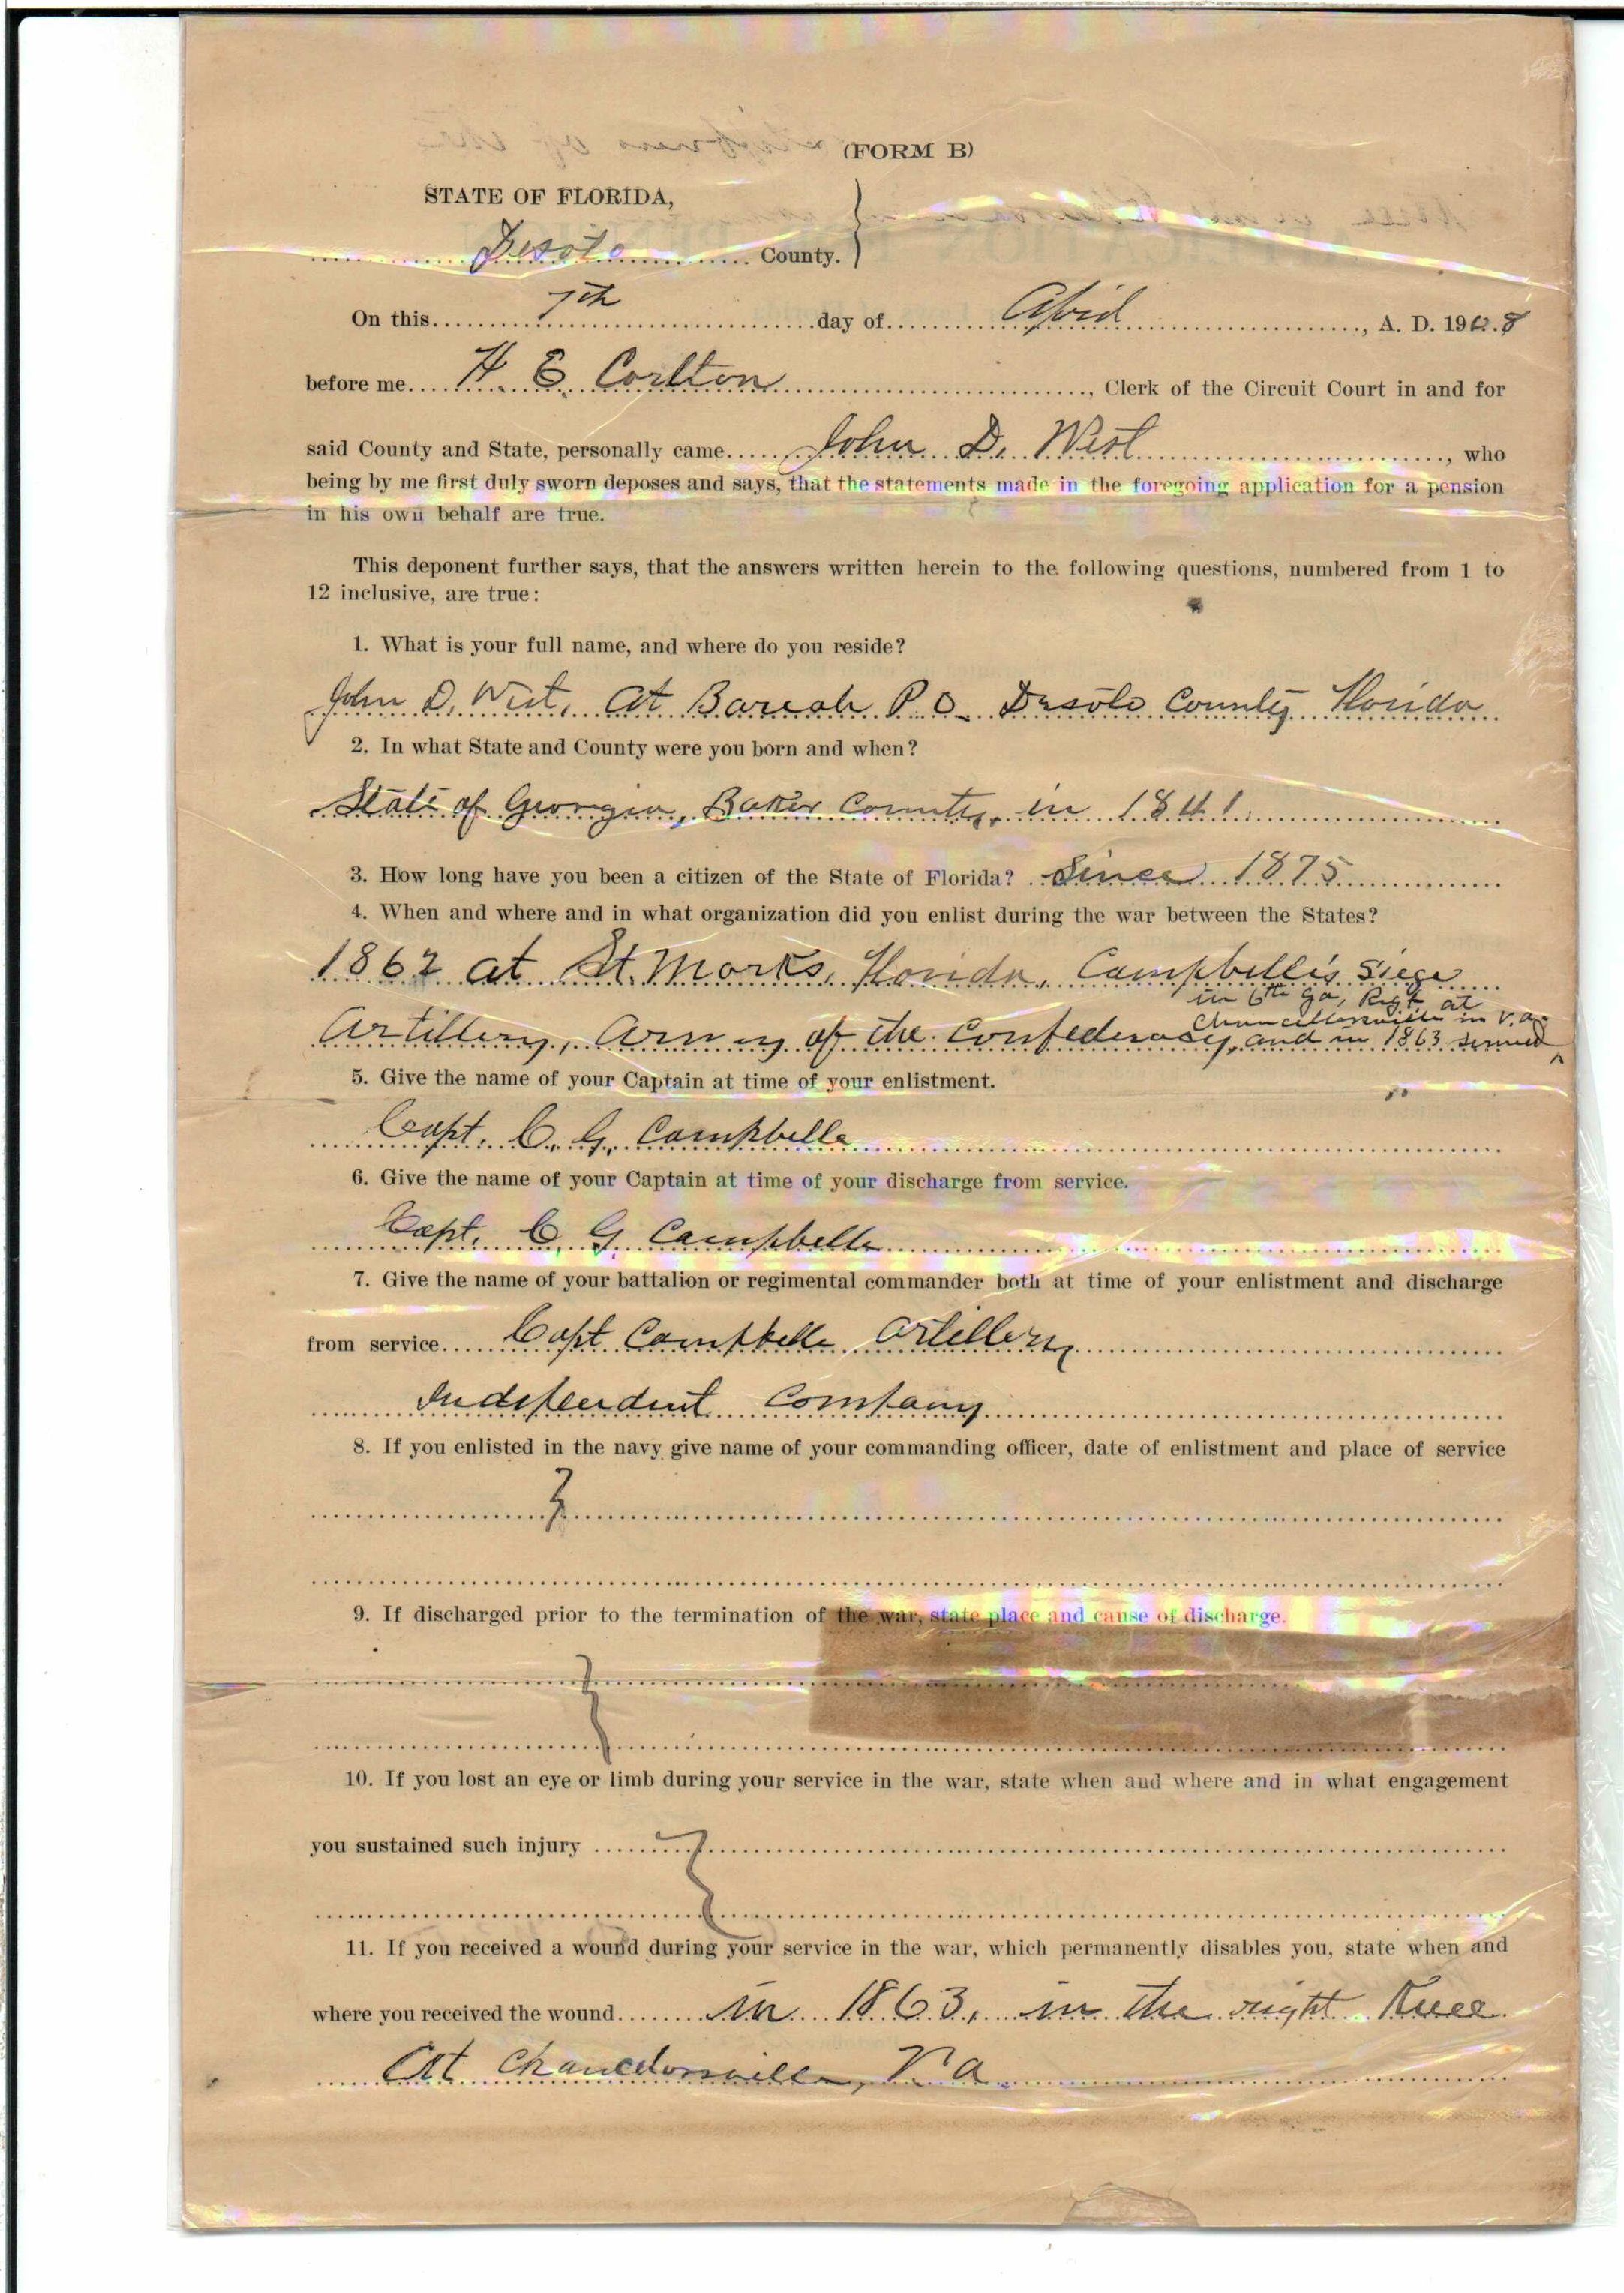 (FORM B)
STATE OF FLORIDA,
Desoto County.
On this 7th day of April, A. D. 1908
before me H. E. Carlton, Clerk of the Circuit Court in and for
said County and State, personally came John D. West, who
being by me first duly sworn deposes and says, that the statements made in the foregoing application for a pension
in his own behalf are true.
This deponent further says, that the answers written herein to the following questions, numbered from 1 to
12 inclusive, are true:
1. What is your full name, and where do you reside?
John D. West, At Bareah P. O. Desoto County Florida
2. In what State and County were you born and when?
State of Georgia, Baker County, in 1841
3. How long have you been a citizen of the State of Florida? Since 1875
4. When and where and in what organization did you enlist during the war between the States?
1862 at St. Marks, Florida, Campbell's Siege
in 6th Ga, Regt at
Chancellorsville in V.a.
Artillery, Army of the Confederacy, and in 1863 served
5. Give the name of your Captain at time of your enlistment.
Capt. C. G. Campbelle
6. Give the name of your Captain at time of your discharge from service.
Capt. C G Campbelle
7. Give the name of your battalion or regimental commander both at time of your enlistment and discharge
from service Capt Campbelle Artillery
Independent Company
8. If you enlisted in the navy give name of your commanding officer, date of enlistment and place of service
9. If discharged prior to the termination of the war, state place and cause of discharge.
10. If you lost an eye or limb during your service in the war, state when and where and in what engagement
you sustained such injury
11. If you received a wound during your service in the war, which permanently disables you, state when and
where you received the wound in 1863, in the right Knee
At Chancelorsville, V a